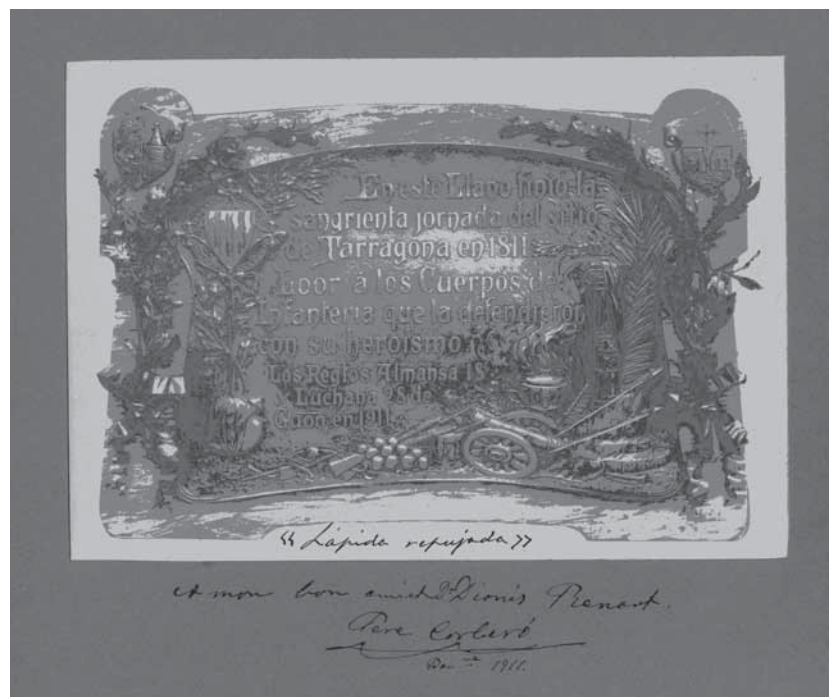 En este Llano finió la
sangrienta jornada del sitio
de Tarragona en 1811
Loor á los Cuerpos de
Infanteria que la defendieron
con su heroismo
Los Regtos Almansa 18
Luchana 28 de
en 1911
“Lápida repujada”
A mon bon amich Dn Dionís Renart.
Pere Corberó
1911.